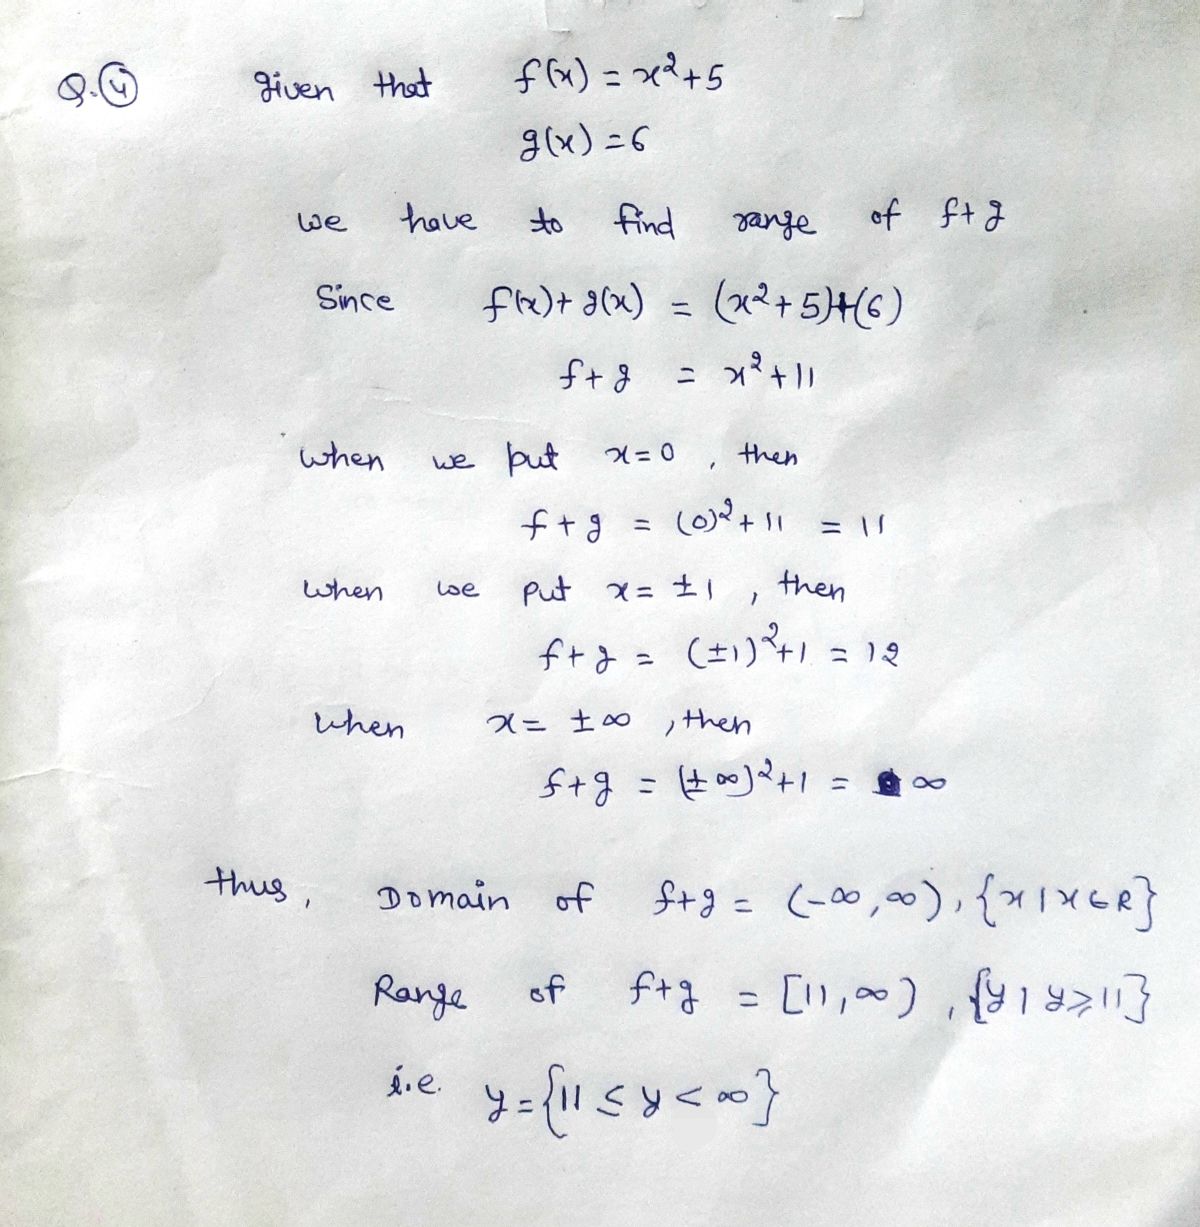 Q.④ given that f(x) = x²+5
g(x) = 6
we have to find range of f+g
Since f(x)+g(x) = (x²+5)+(6)
f+g = x²+11
when we put x=0, then
f+g = (0)²+11 = 11
when we put x=±1, then
f+g = (±1)²+1 = 12
when x=±∞, then
f+g = (±∞)²+1 = ∞
thus, Domain of f+g = (-∞,∞), {x|x∈R}
Range of f+g = [11,∞), {y|y⩾11}
i.e. y={11≤y<∞}